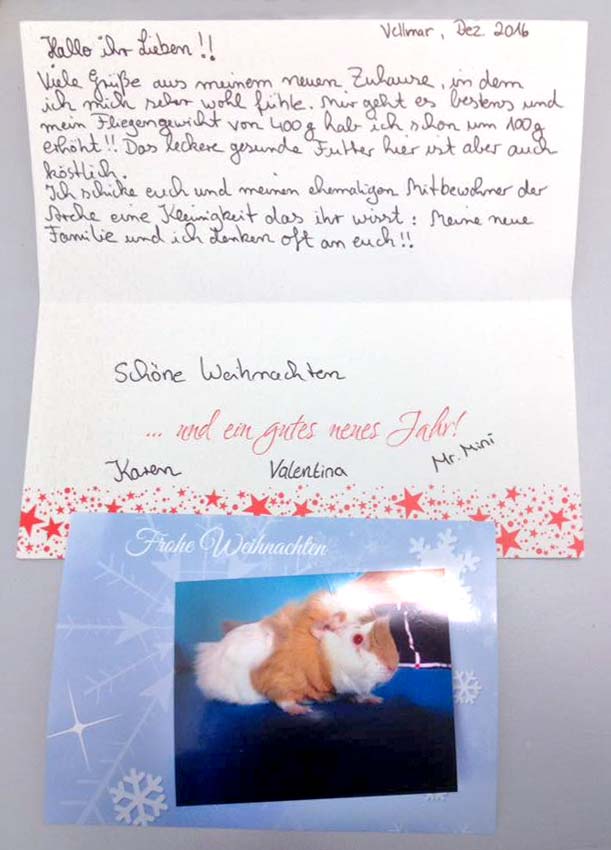 Vellmar, Dez. 2016
Hallo ihr Lieben!!
Viele Grüße aus meinem neuen Zuhause, in dem
ich mich sehr wohl fühle. Mir geht es bestens und
mein Fliegengewicht von 400g hab ich schon um 100g
erhöht!! Das leckere gesunde Futter hier ist aber auch
köstlich.
Ich schicke euch und meinen ehemaligen Mitbewohner der
Arche eine Kleinigkeit das ihr wisst: Meine neue
Familie und ich denken oft an euch!!
Schöne Weihnachten
... und ein gutes neues Jahr!
Karen Valentina Mr. Mini
Frohe Weihnachten